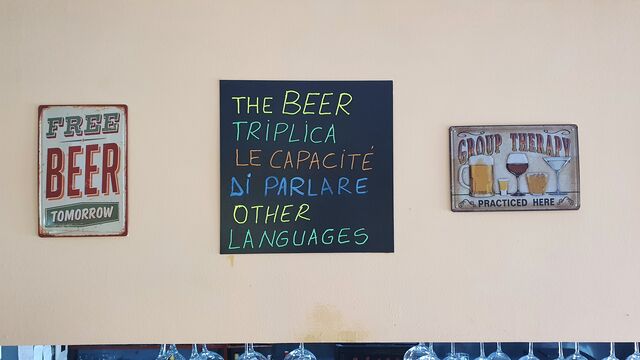 FREE
BEER
TOMORROW
THE BEER
TRIPLICA
LE CAPACITÉ
DI PARLARE
OTHER
LANGUAGES
GROUP THERAPY
PRACTICED HERE